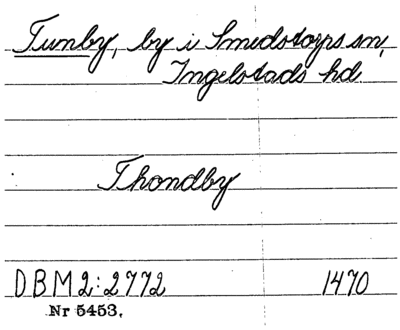 Tunby, by i Smedstorps sn,
Ingelstads hd
Thondby
DBM2:2772 1470
Nr 5453.